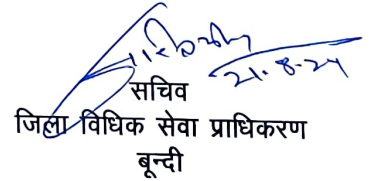 21.8.24
सचिव
जिला विधिक सेवा प्राधिकरण
बून्दी